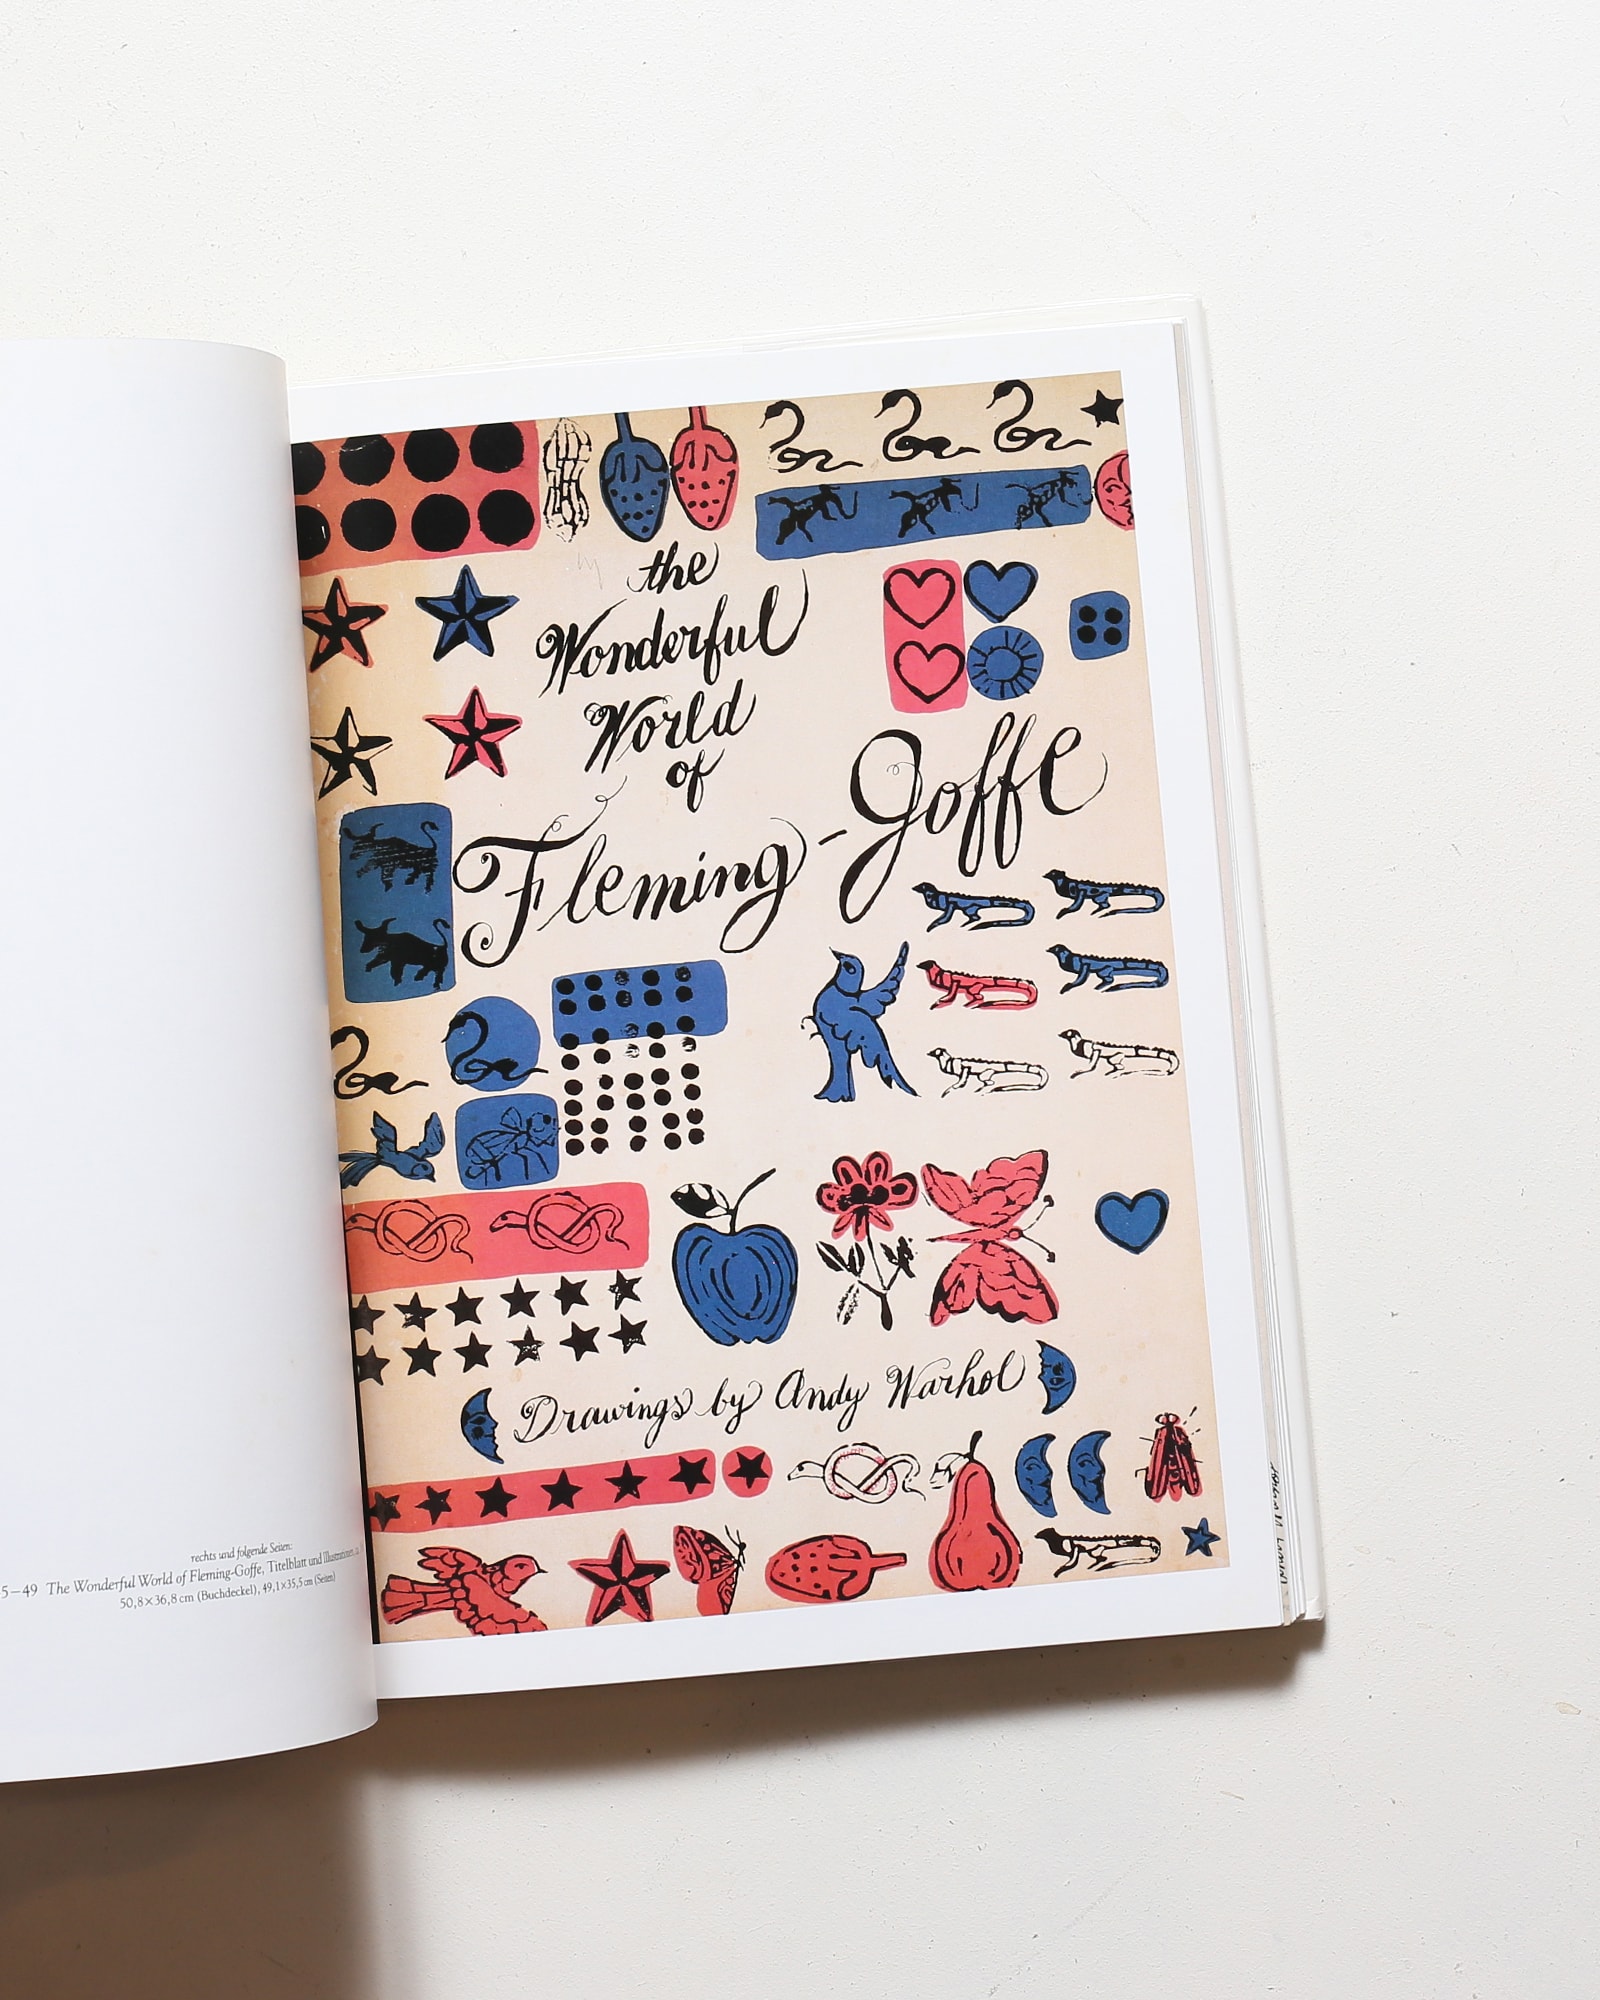 the
Wonderful
World
of
Fleming-Goffe
Drawings by Andy Warhol
rechts und folgende Seiten:
5–49 The Wonderful World of Fleming-Goffe, Titelblatt und Illustrationen,
50,8×36,8 cm (Buchdeckel), 49,1×35,5 cm (Seiten)